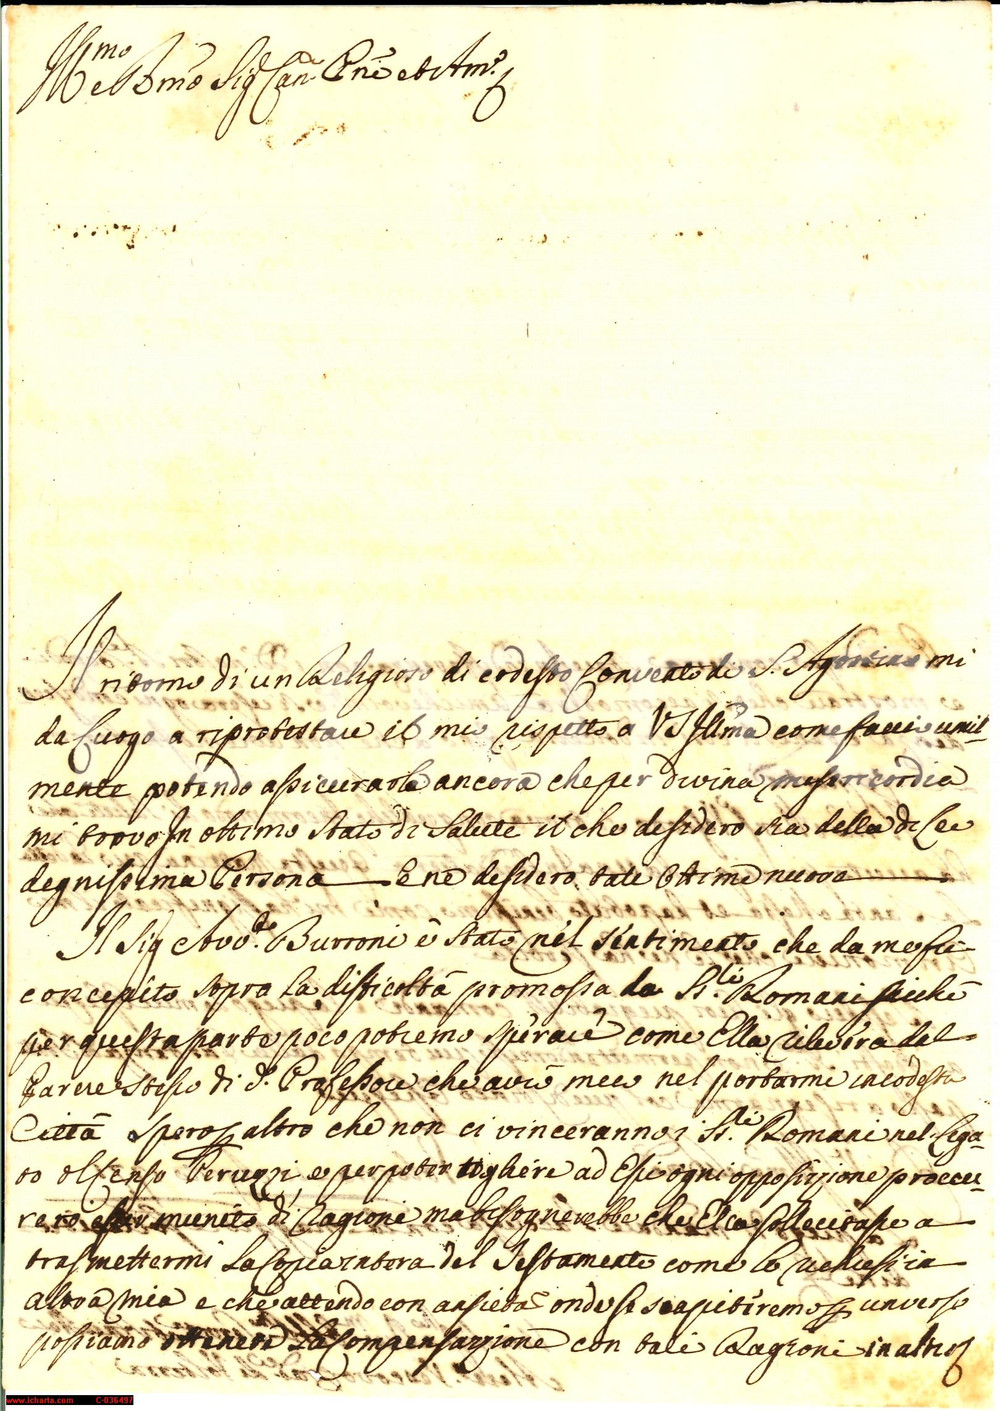 Ill.mo e R.mo Sig.r Can.co P.ne et Am.o
Il ritorno di un Religioso di codesto Convento di S. Agostino mi
da luogo a riprotestare il mio rispetto a VS Ill.ma come faccio umil-
mente potendo assicurarla ancora che per divina misericordia
mi trovo In ottimo stato di Salute il che desidero sia della di Lei
degnissima Persona E ne desidero tale ottime nuove
Il Sig. Avv.to Burroni è stato nel sentimento che da me fu
concepito sopra la difficoltà promossa da SS.ri Romani sicchè
per questa parte poco potremo sperare come Ella rileverà dal
Parere stesso di d.o Professore che avrò meco nel portarmi in codesta
Città spero p altro che non ci vinceranno i SS.ri Romani nel Lega-
to o Censo Peruzzi, e per poter togliere ad Essi ogni opposizione proccu-
rerò esser munito di Ragione ma bisognerebbe che Ella sollecitasse a
trasmettermi La Copia intera del Testamento come lo richiesi in
altra mia e che attendo con ansietà onde se scapiteremo p un verso
possiamo ottenere La Compensazzione con tali Ragioni in altro
www.icharta.com C-036497